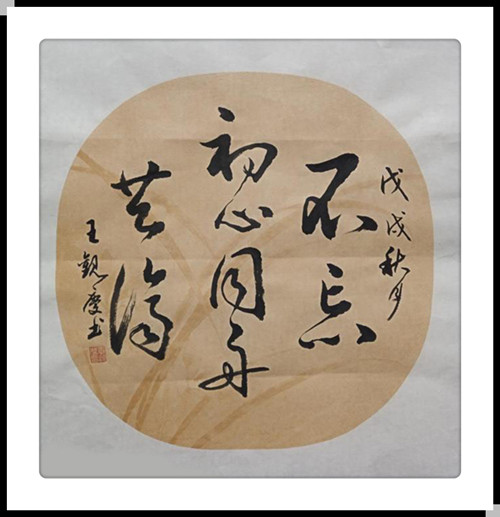 戊戌秋月
不忘
初心同舟
共濟
王觀慶书